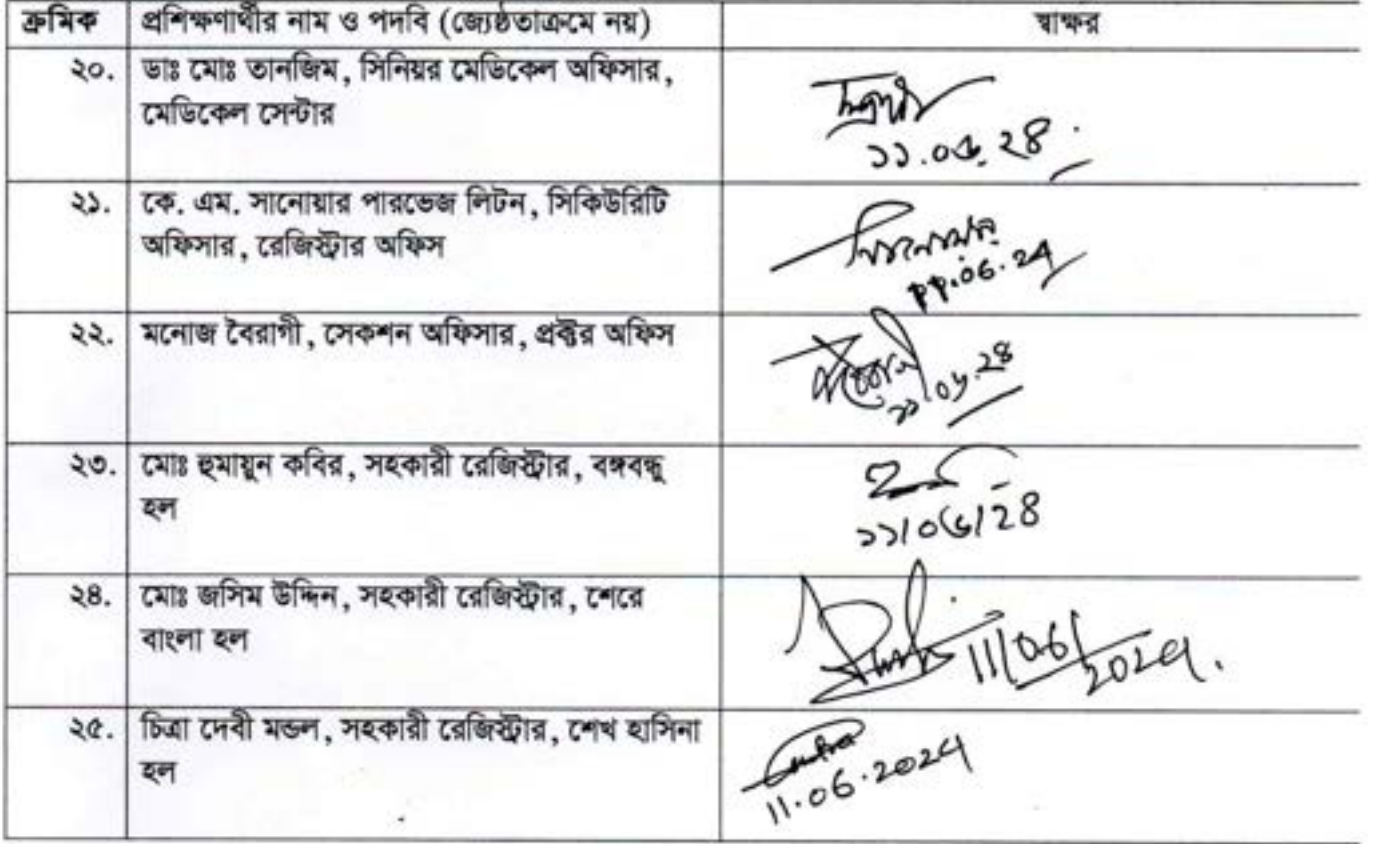 ক্রমিক প্রশিক্ষণার্থীর নাম ও পদবি (জ্যেষ্ঠতাক্রমে নয়) স্বাক্ষর
২০. ডাঃ মোঃ তানজিম, সিনিয়র মেডিকেল অফিসার,
মেডিকেল সেন্টার
১১.০৬.২৪
২১. কে. এম. সানোয়ার পারভেজ লিটন, সিকিউরিটি
অফিসার, রেজিস্ট্রার অফিস
সানোয়ার
11.06.24
২২. মনোজ বৈরাগী, সেকশন অফিসার, প্রক্টর অফিস
১১.০৬.২৪
২৩. মোঃ হুমায়ুন কবির, সহকারী রেজিস্ট্রার, বঙ্গবন্ধু
হল
১১/০৬/২৪
২৪. মোঃ জসিম উদ্দিন, সহকারী রেজিস্ট্রার, শেরে
বাংলা হল
11/06/2024.
২৫. চিত্রা দেবী মন্ডল, সহকারী রেজিস্ট্রার, শেখ হাসিনা
হল
11.06.2024